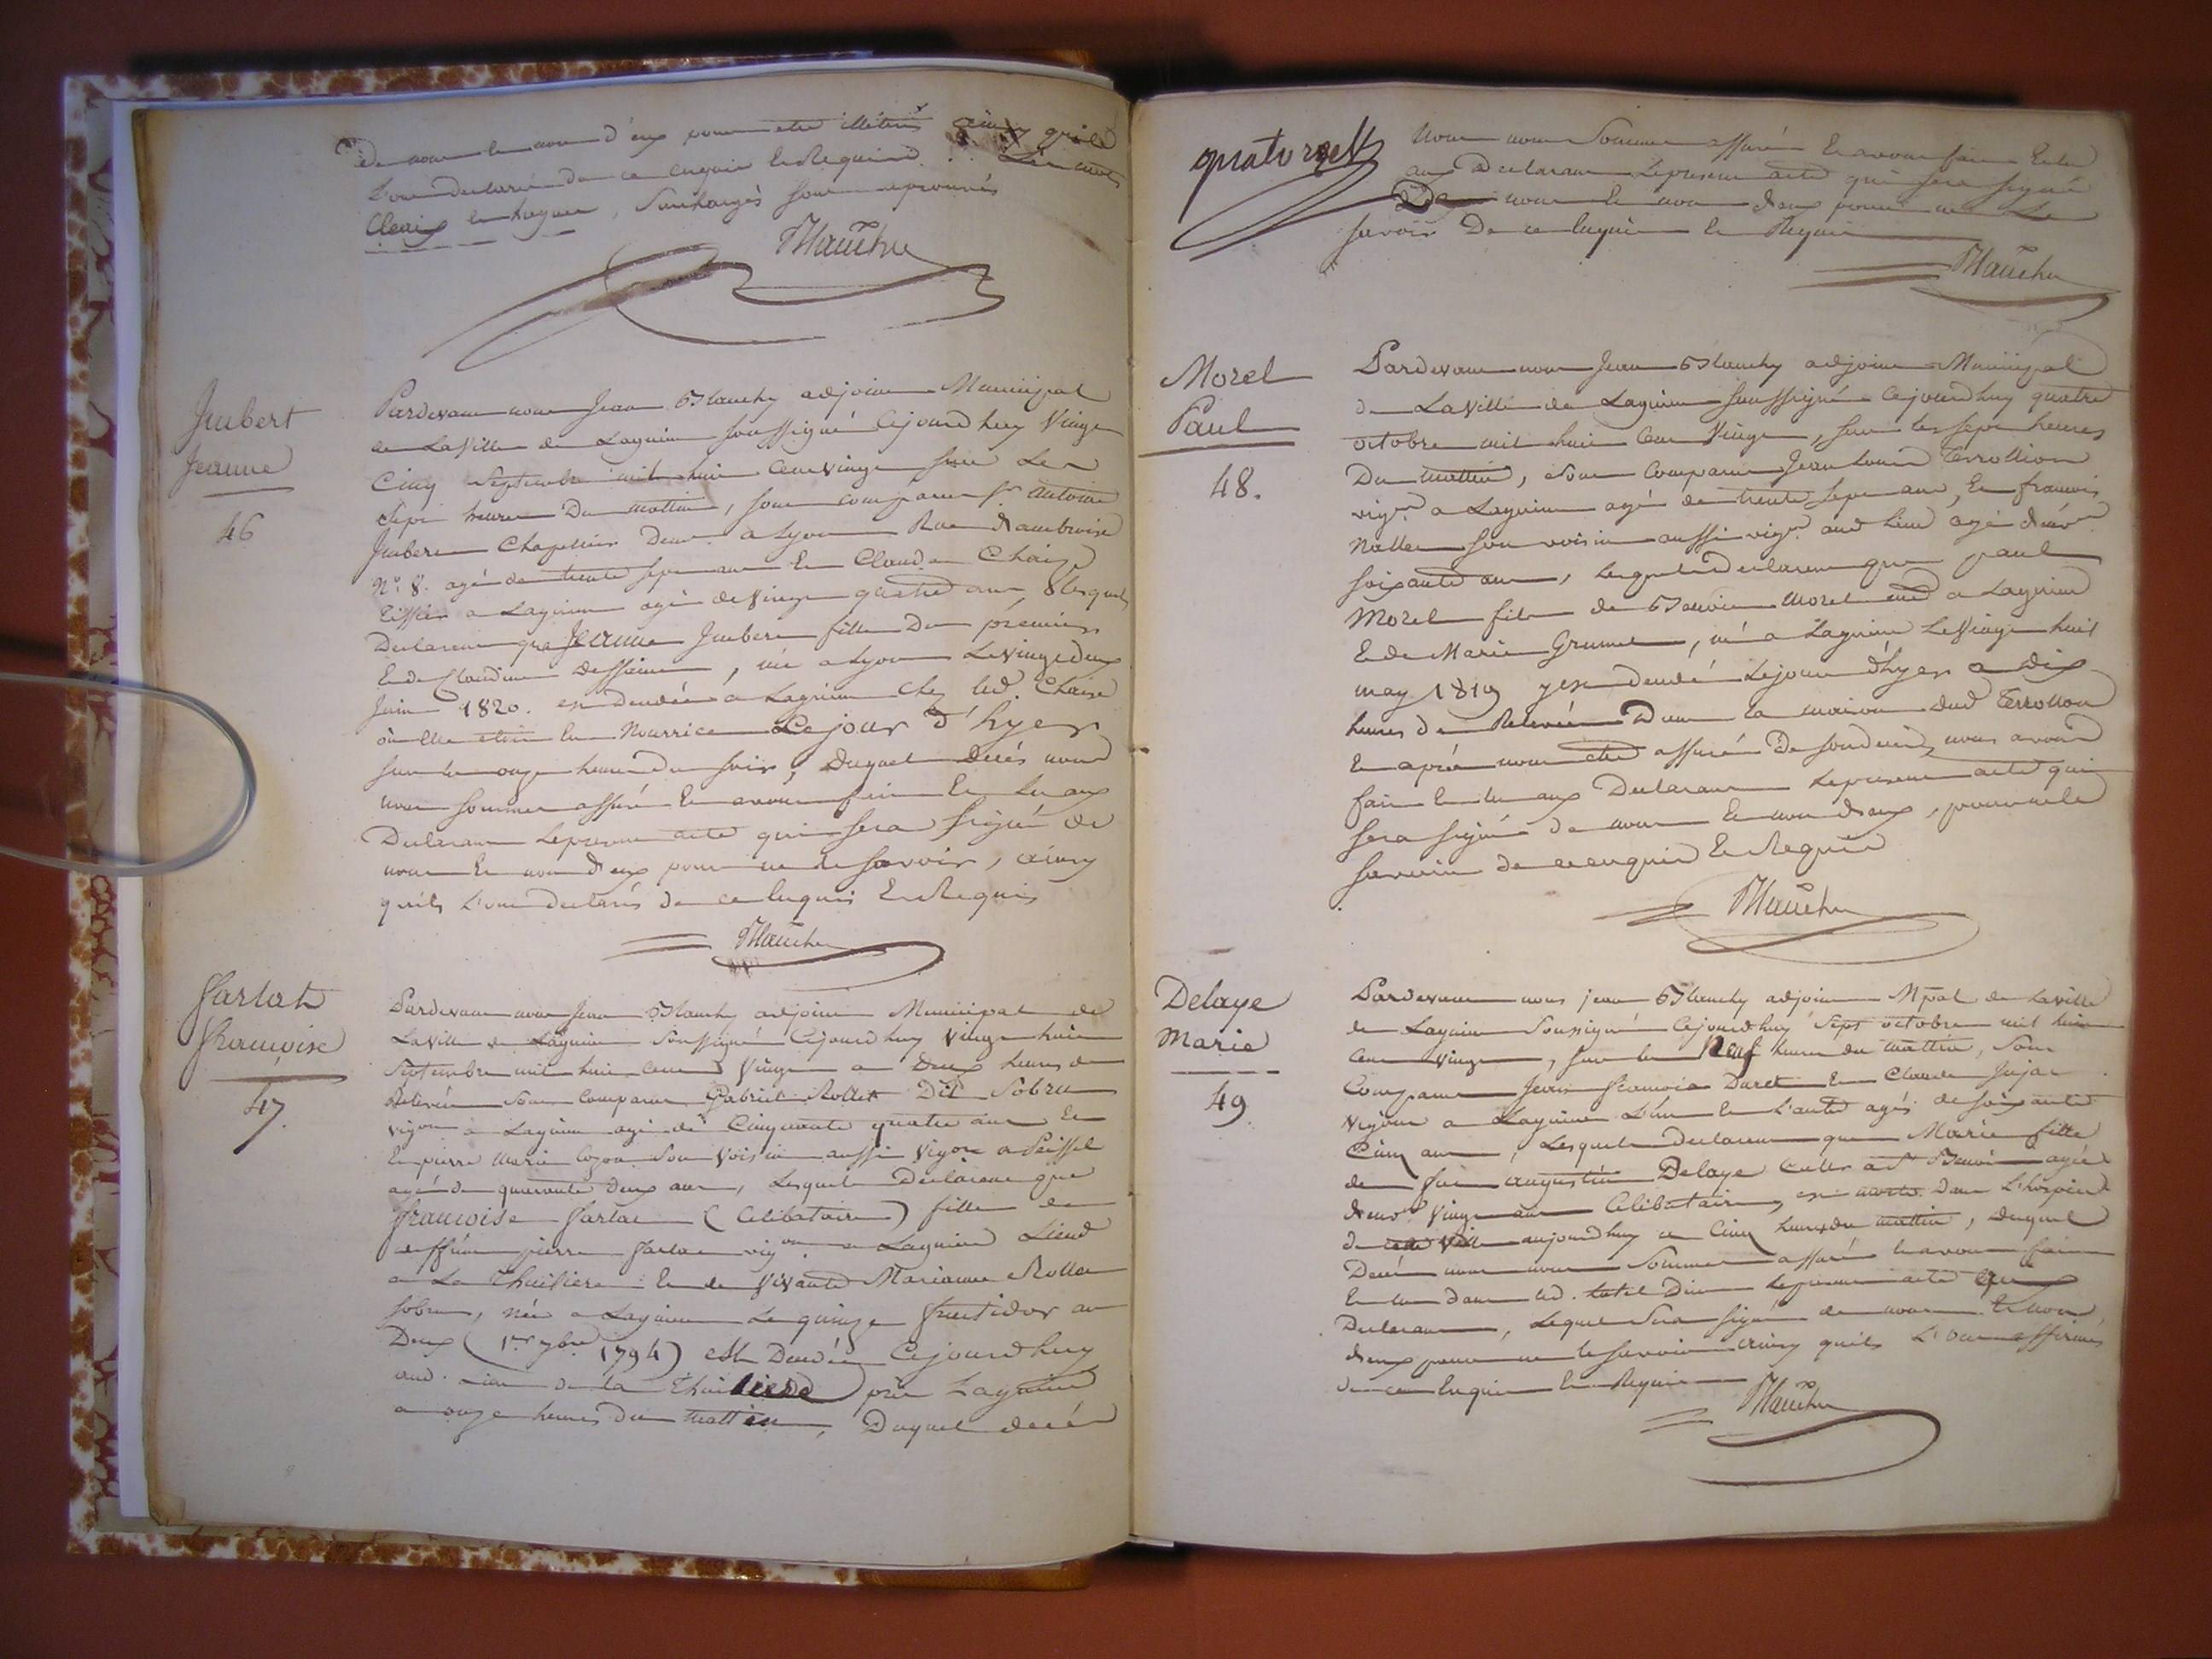 De nous et non d'eux pour etre illiterés ainsy qu'ils
L'ont declaré de ce enquis et Requis. Les mots
Cleaix
Blanchy
Jubert
Jeanne
46
Pardevant nous Jean Blanchy adjoint Municipal
de La Ville de Lagnieu soussigné Cejourd'huy Vingt
Cinq Septembre mil huit Cent vingt sur Les
Sept heures Du mattin, sont comparus sr antoine
Jubert Chapellier Demt a Lyon Rue St ambroise
N° 8. agé de trente sept ans Et Claude Chaize
Tissier a Lagnieu agé de Vingt quatre ans, Lesquels
Declarent que Jeanne Jubert fille Du premier
Et de Claudine Dessaine, née a Lyon Le vingt deux
Juin 1820. est decedée a Lagnieu chez led. Chaize
où elle etoit en Nourrice Le jour d'hyer
sur les onze heures du soir, Duquel Decés nous
nous sommes assuré Et avons fait Et Lu aux
Declarants Le present acte qui sera signé de
nous Et non d'eux pour ne le savoir, ainsy
qu'ils L'ont declarés de ce Enquis Et Requis
Blanchy
Sarlat
Francoise
47.
Pardevant nous Jean Blanchy adjoint Municipal de
La Ville de Lagnieu Soussigné Cejourd'huy Vingt huit
Septembre mil huit cent Vingt a Deux heures de
Relevée sont Comparus Gabriel Rollet Dit Sobru
vigon a Lagnieu agé de Cinquante quatre ans Et
Et pierre Marie Cozon son Voisin aussi Vigon a
agé de quarante deux ans, Lesquels Declarent que
francoise Sarlat (Celibataire) fille de
deffunt pierre Sarlat vigon a Lagnieu Lieud
a La Thuiliere Et de Vivante Marianne Rollet
Sobru, née a Lagnieu Le quinze fructidor an
Deux (1er 7bre 1794) est Decedée Cejourd'huy
aud. Lieu de la Thuiliere près Lagnieu
a onze heures du mattin, Duquel decés
quatorze
Nous nous Sommes assurés Et avons fait Et Lu
aux Declarants Le present acte qui sera signé
De nous Et non d'eux pour ne Le
savoir De ce Enquis Et Requis
Blanchy
Morel
Paul
48.
Pardevant nous Jean Blanchy adjoint Municipal
de La Ville de Lagnieu soussigné Cejourd'huy quatre
octobre mil huit Cent Vingt, sur les sept heures
Du mattin, sont Comparus Jean Louis Terrollion
vign a Lagnieu agé de trente sept ans, Et francois
Nallet son voisin aussi vign aud Lieu agé d'env
soixante ans, Lesquels Declarent que paul
Morel fils de Benoit Morel a Lagnieu
Et de Marie Grumet, né a Lagnieu Le Vingt huit
may 1819 y est decedé Le jour d'hyer a dix
heures de Relevée Dans la maison dud Terrollion
Et après nous etre assuré De son decés, nous avons
fait Et lu aux Declarants Le present acte qui
sera signé de nous Et non d'eux, pour ne le
savoir de ce enquis Et Requis
Blanchy
Delaye
Marie
49
Pardevant nous jean Blanchy adjoint Mpal de La Ville
de Lagnieu Soussigné Cejourd'huy Sept octobre mil huit
Cent Vingt, sur les Neuf heures du mattin, sont
Comparus Jean francois Duret Et Claude Jujat
Vignons a Lagnieu L'un Et L'autre agés de soixante
Cinq ans, Lesquels Declarent que Marie fille
de feu augustin Delaye Cultr a St Benoit agée
d'env Vingt ans Celibataire, est morte dans L'hospice
de cette Ville aujourd'huy a Cinq heures du mattin, duquel
Decés nous nous Sommes assuré Et avons fait
Et lu dans led. hotel Dieu Le present acte aux
Declarants, Lequel Sera signé de nous Et non
d'eux pour ne le savoir ainsy qu'ils L'ont affirmés
de ce Enquis Et Requis
Blanchy